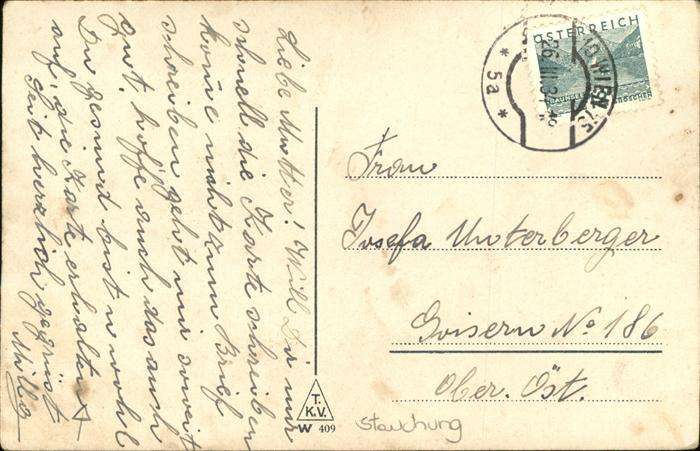 Liebe Mutter! Will Dir nur
schnell die Karte schreiben
komme nicht zum Brief
schreiben geht mir soweit
gut. hoffe auch das auch
Du gesund bist u wohl
auf, die Karte erhalten
Seit herzlich gegrüst
ÖSTERREICH
WIEN 75
26. III. 34
* 5a *
Frau
Josefa Unterberger
Goisern No 186
Ober. Öst.
T.
K.V.
W 409
Stauchung